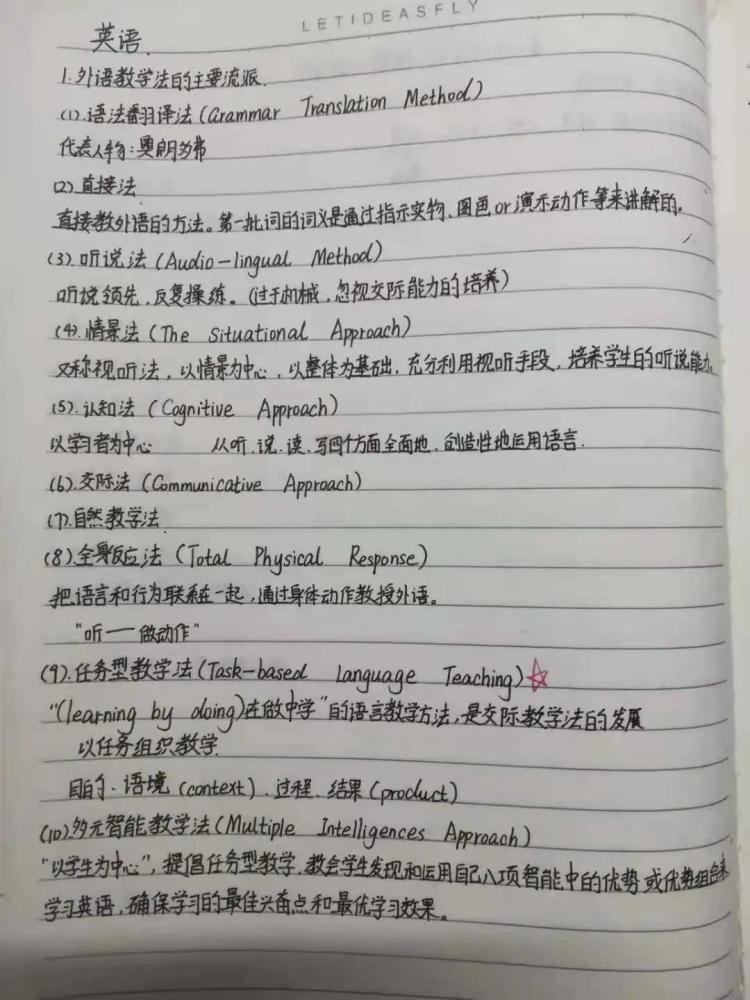 LETIDEASFLY
英语.
1.外语教学法的主要流派.
(1).语法翻译法(Grammar Translation Method)
代表人物:奥朗多弗
(2)直接法
直接教外语的方法。第一批词的词义是通过指示实物、图画or演示动作等来讲解的.
(3).听说法(Audio-lingual Method)
听说领先,反复操练。(过于机械,忽视交际能力的培养)
(4).情景法(The Situational Approach)
又称视听法,以情景为中心,以整体为基础,充分利用视听手段,培养学生的听说能力。
(5).认知法(Cognitive Approach)
以学习者为中心 从听.说.读.写四个方面全面地.创造性地运用语言.
(6).交际法(Communicative Approach)
(7).自然教学法
(8).全身反应法(Total Physical Response)
把语言和行为联系在一起,通过身体动作教授外语。
“听——做动作”
(9).任务型教学法(Task-based Language Teaching)☆
“(learning by doing)在做中学”的语言教学方法,是交际教学法的发展
以任务组织教学.
目的.语境(context).过程.结果(product)
(10)多元智能教学法(Multiple Intelligences Approach)
“以学生为中心”,提倡任务型教学.教会学生发现和运用自己八项智能中的优势或优势组合来
学习英语,确保学习的最佳兴奋点和最优学习效果。